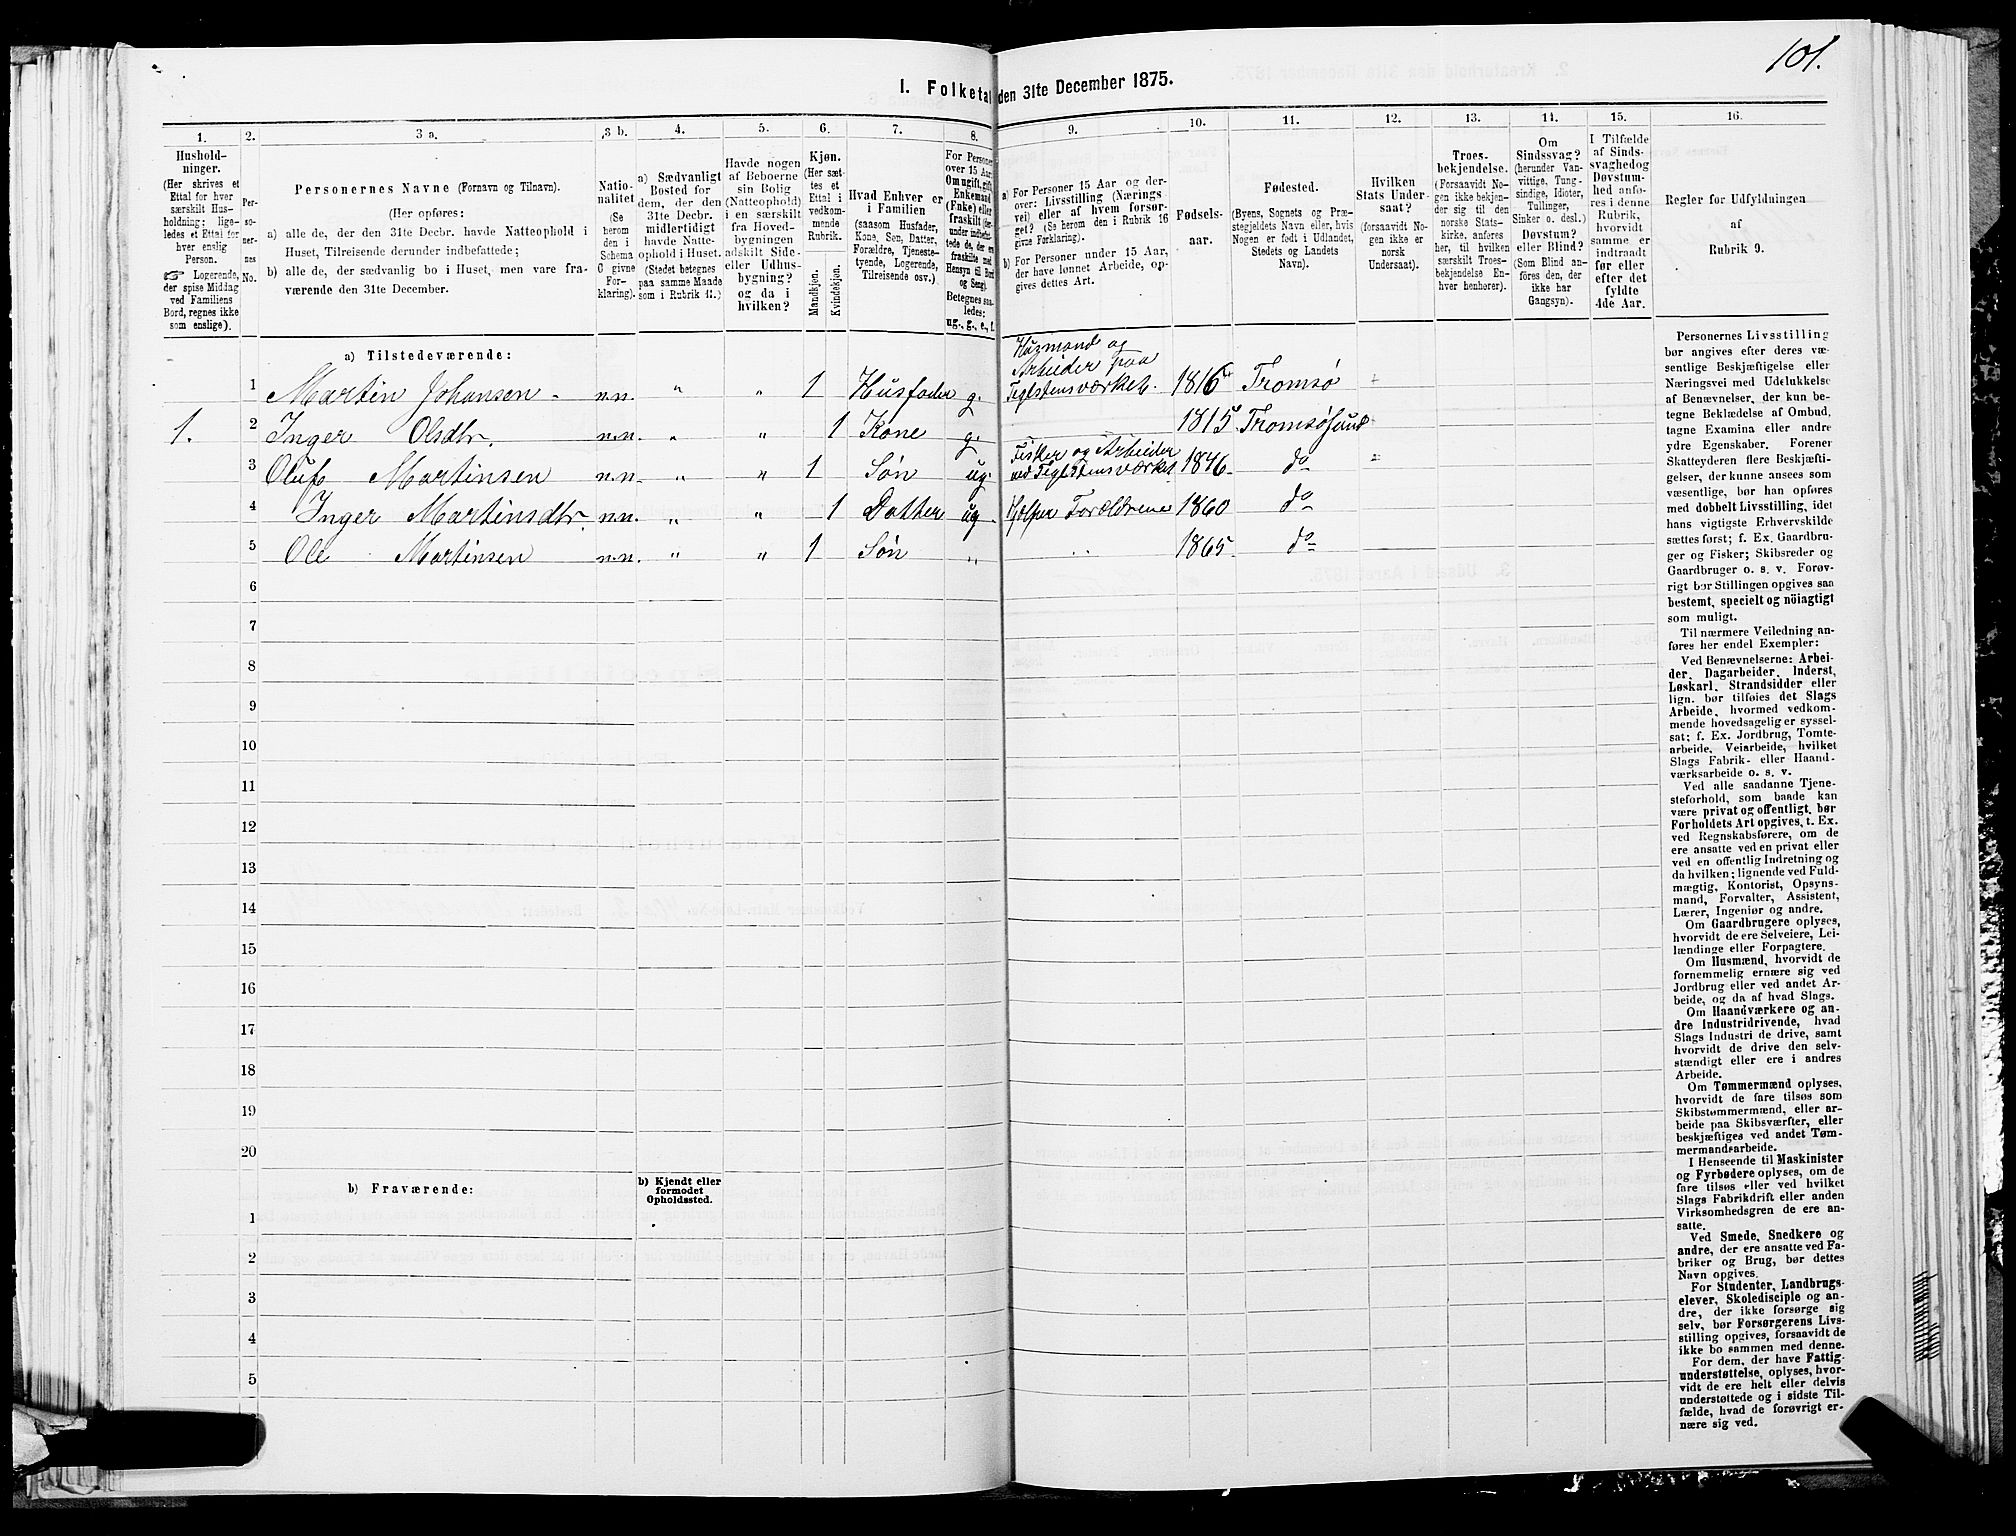 101.
1. Folketal den 31te December 1875.
1. 2. 3 a. 3 b. 4. 5. 6. 7. 8. 9. 10. 11. 12. 13. 14. 15. 16.
Hushold-
ninger.
(Her skrives et
Ettal for hver
særskilt Hus-
holdning; lige-
ledes et Ettal for
hver enslig
Person.
☞ Logerende,
der spise Middag
ved Familiens
Bord, regnes ikke
som enslige).
Per-
so-
ner-
nes
No.
Personernes Navne (Fornavn og Tilnavn).
(Her opføres:
a) alle de, der den 31te Decbr. havde Natteophold i
Huset, Tilreisende derunder indbefattede;
b) alle de, der sædvanlig bo i Huset, men vare fra-
værende den 31te December.
Natio-
nalitet
(Se
herom
den i
Schema
C givne
For-
klaring).
a) Sædvanligt
Bosted for
dem, der den
31te Decbr.
midlertidigt
havde Natte-
ophold i Huset.
(Stedet betegnes
paa samme Maade
som i Rubrik 11.)
Havde nogen
af Beboerne
sin Bolig
(Natteophold)
i en særskilt
fra Hoved-
bygningen
adskilt Side-
eller Udhus-
bygning?
og da i
hvilken?
Kjøn.
(Her sæt-
tes et
Ettal i
vedkom-
mende
Rubrik.
Mandkjøn.
Kvindekjøn.
Hvad Enhver er
i Familien
(saasom Husfader,
Kone, Søn, Datter,
Forældre, Tjeneste-
tyende, Logerende,
Tilreisende osv.)
For Personer
over 15 Aar:
Om ugift, gift,
Enkemand
(Enke) eller
fraskilt
og Seng).
Betegnes saa-
ledes:
ug., g., e., f.
a) For Personer 15 Aar og der-
over: Livsstilling (Nærings-
vei) eller af hvem forsør-
get? (Se herom den i Rubrik 16
givne Forklaring).
b) For Personer under 15 Aar,
der have lønnet Arbeide, op-
gives dettes Art.
Fødsels-
aar.
Fødested.
(Byens, Sognets og Præ-
stegjeldets Navn eller, hvis
Nogen er født i Udlandet,
Stedets og Landets
Navn).
Hvilken
Stats Under-
saat?
(forsaavidt No-
gen ikke er
norsk
Undersaat).
Troes-
bekjendelse.
(Forsaavidt No-
gen ikke bekjen-
der sig til den
norske Stats-
kirke, anføres
her, til hvilken
særskilt Troes-
bekjendelse En-
hver henhører).
Om
Sindssvag?
(herunder Van-
vittige, Tung-
sindige, Idioter,
Tullinger,
Sinker o. desl.)
Døvstum?
eller Blind?
(Som Blind an-
føres den, der
ikke har
Gangsyn).
I Tilfælde
af Sinds-
svaghed og
Døvstum-
hed anfø-
res i denne
Rubrik,
hvorvidt
samme er
indtraadt
før eller
efter det
fyldte
4de Aar.
Regler for Udfyldningen
af
Rubrik 9.
a) Tilstedeværende:
1 Martin Johansen n.n. " " 1 Husfader g. Husmand og Arbeider paa Teglstensværket. 1816 Tromsø
1. 2 Inger Olsdtr. n.n. " " 1 Kone g. 1815 Tromsøsund
3 Oluf Martinsen n.n. " " 1 Søn ug. Fisker og Arbeider ved Teglstensværket 1846 do
4 Inger Martinsdtr. n.n. " " 1 Datter ug. Hjelper Forældrene 1860 do
5 Ole Martinsen n.n. " " 1 Søn " " 1865 do
6
7
8
9
10
11
12
13
14
15
16
17
18
19
20
b) Fraværende:
b) Kjendt eller
formodet
Opholdssted.
1
2
3
4
5
Personernes Livsstilling
bør angives efter deres væ-
sentlige Beskjæftigelse eller
Næringsvei med Udelukkelse
af Benævnelser, der kun be-
tegne Beklædelse af Ombud,
tagne Examina eller andre
ydre Egenskaber. Forener
Skatteyderen flere Beskjæfti-
gelser, der kunne ansees som
væsentlige, bør han opføres
med dobbelt Livsstilling, idet
hans vigtigste Erhvervskilde
sættes først; f. Ex. Gaardbru-
ger og Fisker; Skibsreder og
Gaardbruger o. s. v. Forøv-
rigt bør Stillingen opgives saa
bestemt, specielt og nøiagtigt
som muligt.
Til nærmere Veiledning an-
føres her endel Exempler:
Ved Benævnelserne: Arbei-
der, Dagarbeider, Inderst,
Løskarl, Strandsidder eller
lign. bør tilføies det Slags
Arbeide, hvormed vedkom-
mende hovedsagelig er syssel-
sat; f. Ex. Jordbrug, Tomte-
arbeide, Veiarbeide, hvilket
Slags Fabrik- eller Haand-
værksarbeide o. s. v.
Ved alle saadanne Tjene-
steforhold, som baade kan
være privat og offentligt, bør
Forholdets Art opgives, t. Ex.
ved Regnskabsførere, om de
ere ansatte ved en privat eller
ved en offentlig Indretning og
da hvilken; lignende ved Fuld-
mægtig, Kontorist, Opsyns-
mand, Forvalter, Assistent,
Lærer, Ingeniør og andre.
Om Gaardbrugere oplyses,
hvorvidt de ere Selveiere, Lei-
lændinge eller Forpagtere.
Om Husmænd, hvorvidt de
fornemmelig ernære sig ved
Jordbrug eller ved andet Ar-
beide, og da af hvad Slags.
Om Haandværkere og an-
dre Industridrivende, hvad
Slags Industri de drive, samt
hvorvidt de drive den selv-
stændigt eller ere i andres
Arbeide.
Om Tømmermænd oplyses,
hvorvidt de fare tilsøs som
Skibstømmermænd, eller ar-
beide paa Skibsværfter, eller
beskjæftiges ved andet Tøm-
mermandsarbeide.
I Henseende til Maskinister
og Fyrbødere oplyses, om de
fare tilsøs eller ved hvilket
Slags Fabrikdrift eller anden
Virksomhedsgren de ere an-
satte.
Ved Smede, Snedkere og
andre, der ere ansatte ved Fa-
briker og Brug, bør dettes
Navn opgives.
For Studenter, Landbrugs-
elever, Skoledisciple og an-
dre, der ikke forsørge sig
selv, bør Forsørgerens Livs-
stilling opgives, forsaavidt de
ikke bo sammen med denne.
For dem, der have Fattig-
understøttelse, oplyses, hvor-
vidt de ere helt eller delvis
understøttede og i sidste Til-
fælde, hvad de forøvrigt er-
nære sig ved.